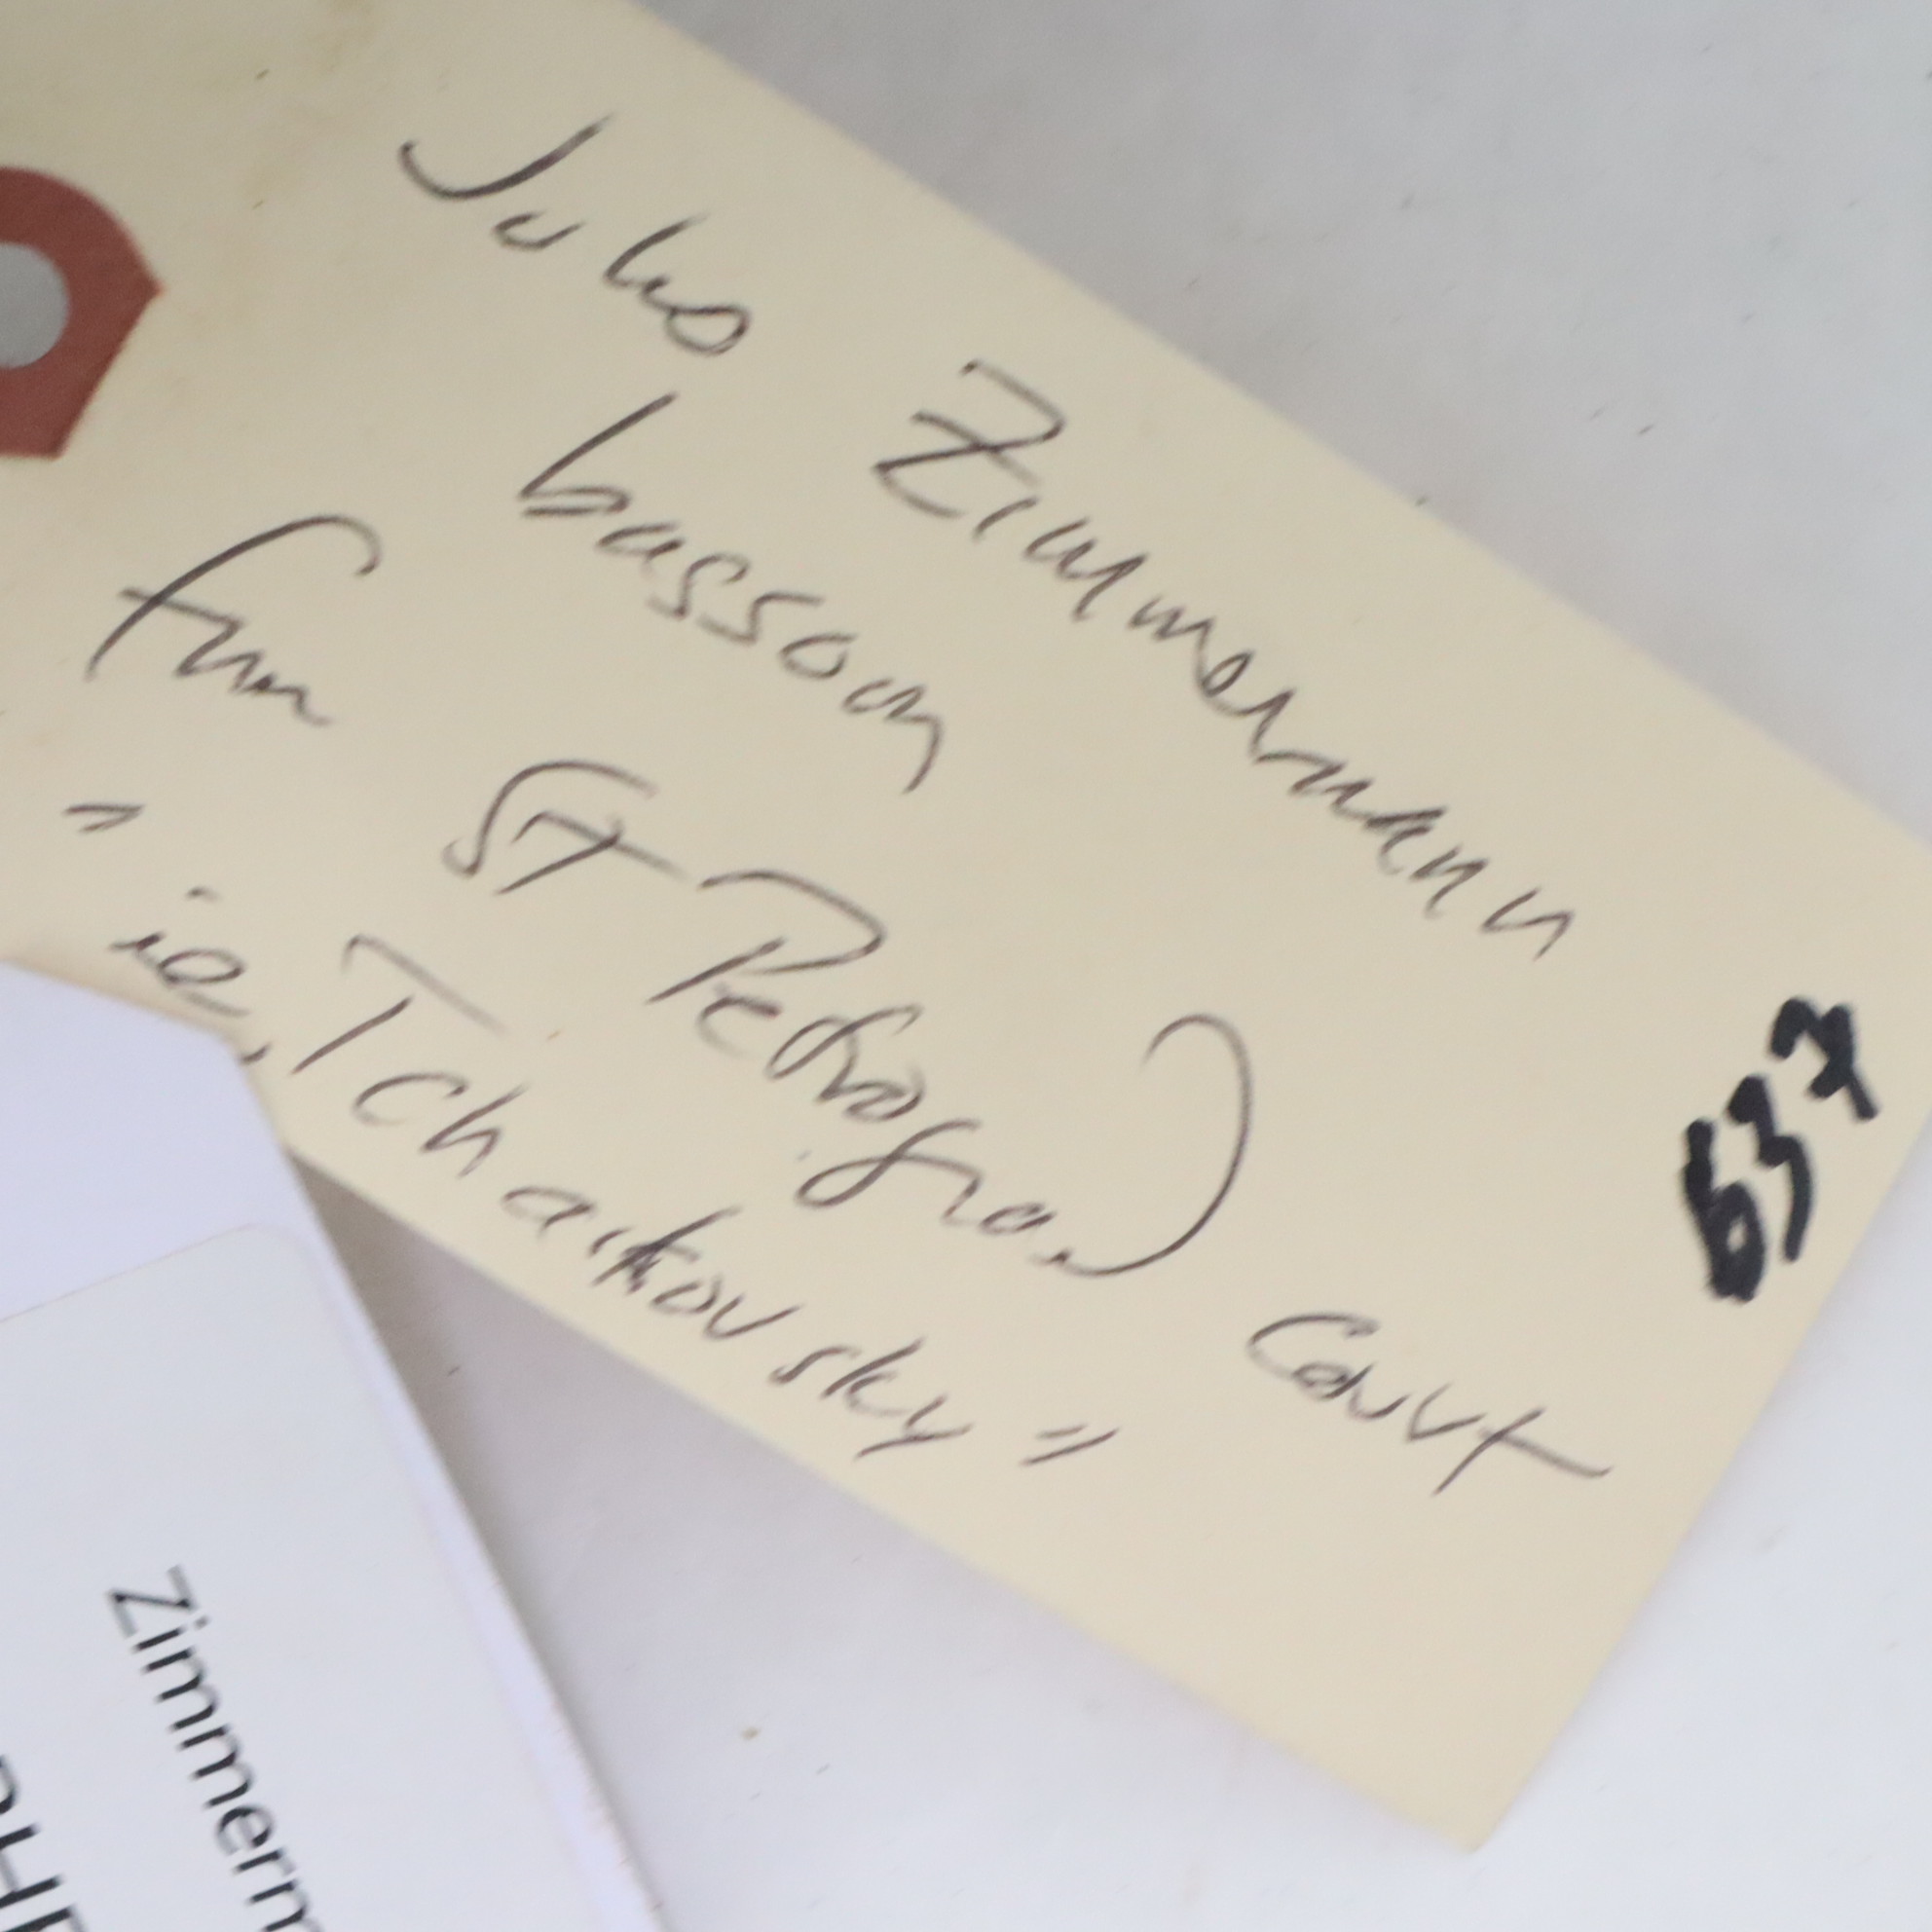 Zimmermann
basson
from St Petrograd Court
"ie, Tchaikovsky"
637
Zimmerm